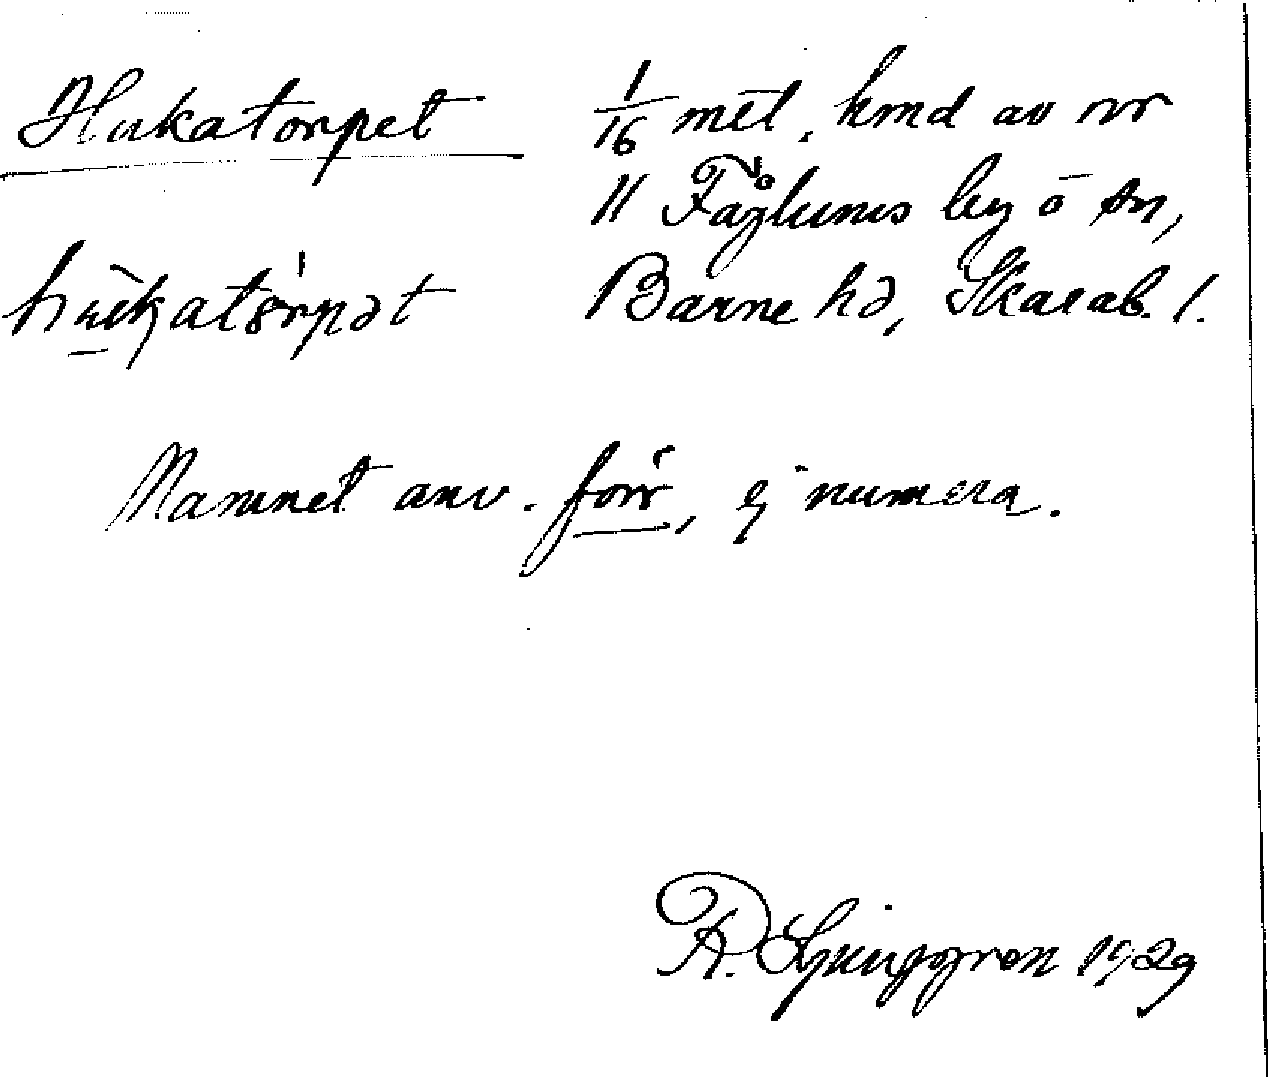 Hukatorpet 1/16 mtl. hmd av nr
11 Fåglums by o sn,
hu̱katörpət Barne hd, Skarab. l.
Namnet anv. förr, ej numera.
R. Ljunggren 1929